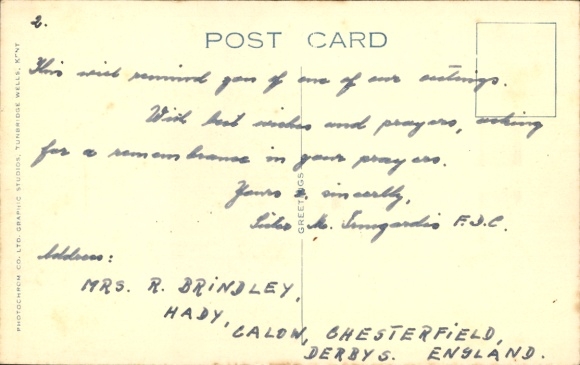 2.
POST CARD
This will remind you of one of our outings.
With best wishes and prayers, asking
for a remembrance in your prayers.
Yours sincerely,
Sister M. Irmgardis F.D.C.
Address:
MRS. R. BRINDLEY,
HADY,
CALOW, CHESTERFIELD,
DERBYS. ENGLAND.
GREETINGS
PHOTOCHROM CO. LTD. GRAPHIC STUDIOS, TUNBRIDGE WELLS, KENT